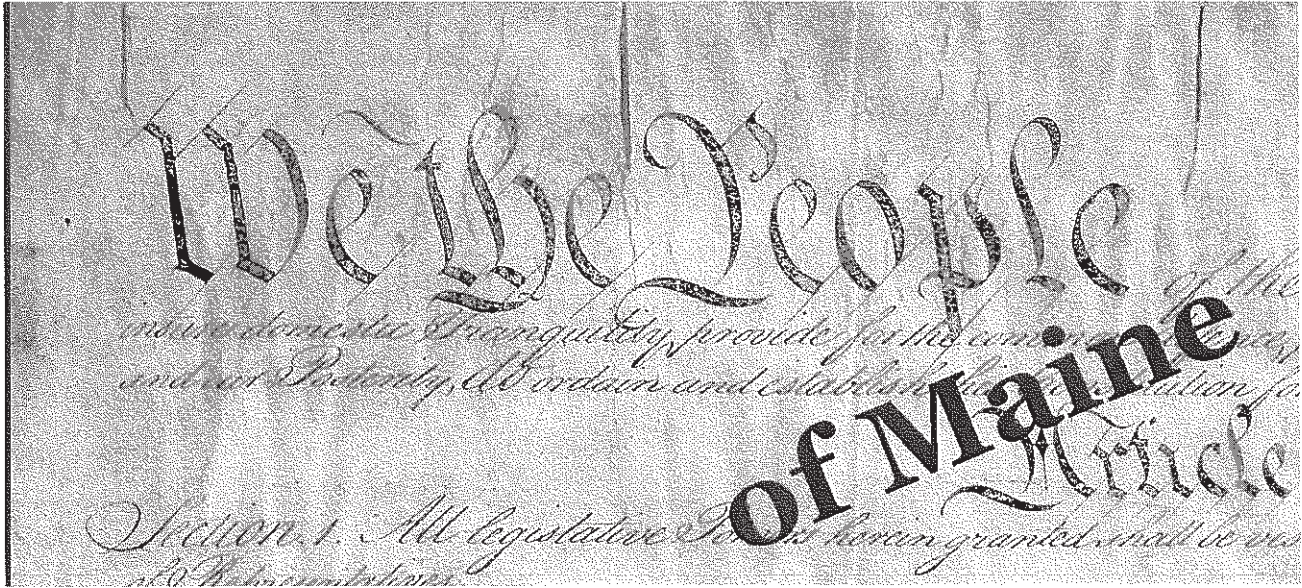 We the People
of the
insure domestic Tranquility, provide for the common defence,
and our Posterity, do ordain and establish this Constitution for
of Maine
Article
Section. 1. All legislative Powers herein granted shall be ves